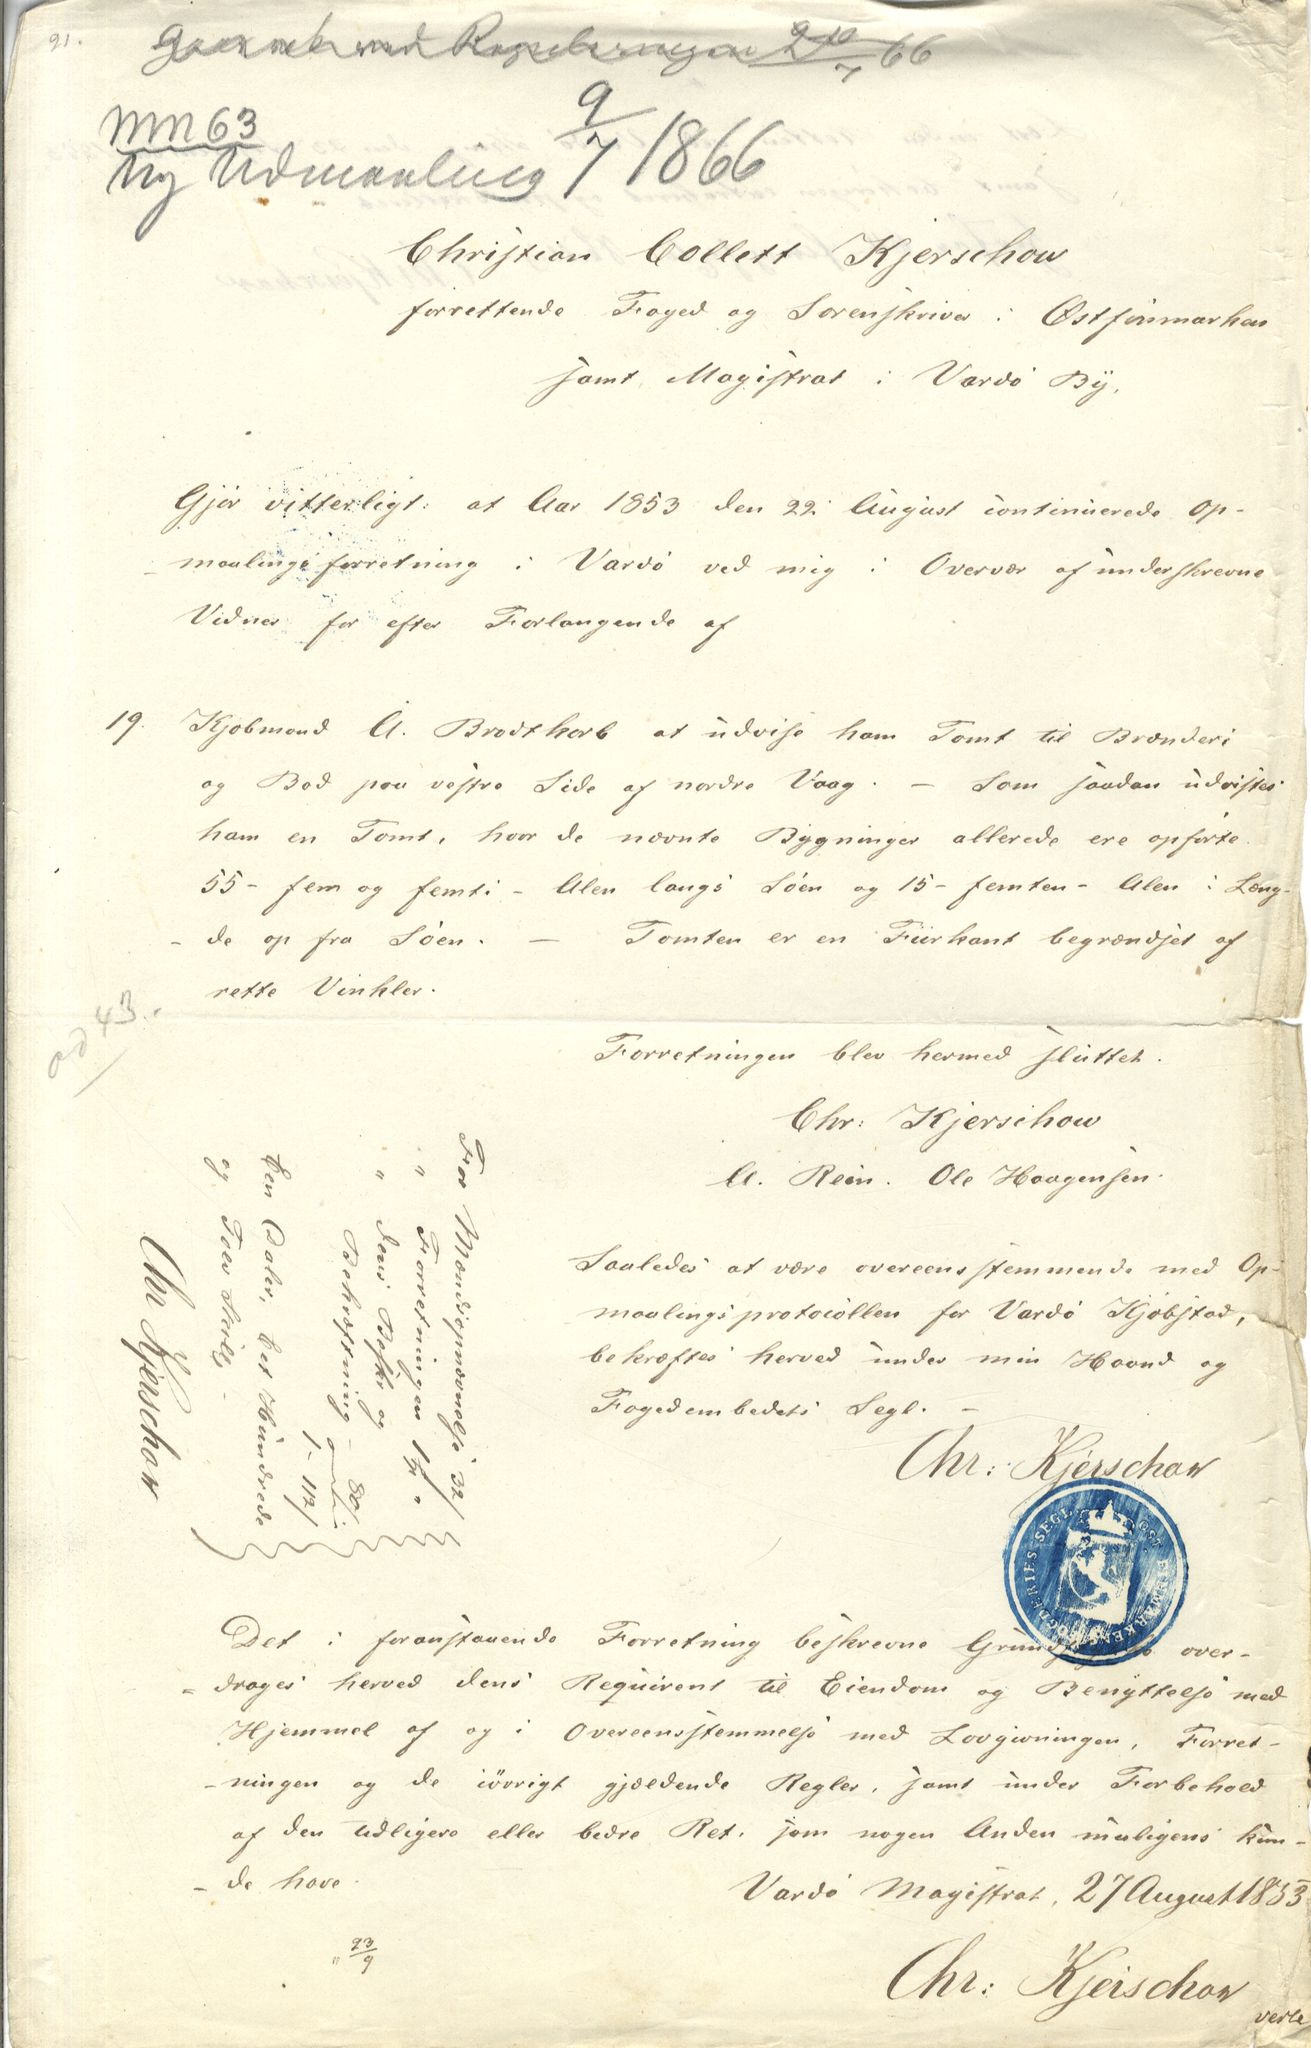 91.
66
MN 63
Ny Udmaaling 9/7 1866
Christian Collett Kjerschow
forrettende Foged og Sorenskriver i Østfinmarken
samt Magistrat i Vardö By,
Gjör vitterligt: at Aar 1853 den 22 August continuerede Op-
-maalingsforretning i Vardö ved mig i Overvær af underskrevne
Vidner for efter Forlangende af
19. Kjöbmand A. Brodtkorb at udvise ham Tomt til Brænderi
og Bod paa vestre Side af nordre Vaag. - Som saadan udvistes
ham en Tomt, hvor de nævnte Bygninger allerede ere opförte
55 - fem og femti - Alen langs Söen og 15 - femten - Alen i Læng-
-de op fra Söen. - Tomten er en Fiirkant begrændset af
rette Vinkler.
ad 43.
Forretningen blev hermed sluttet.
Chr: Kjerschow
A. Rein. Ole Haagensen.
Saaledes at være overeensstemmende med Op-
maalingsprotocollen for Vardö Kjöbstad,
bekræftes herved under min Haand og
Fogedembedets Segl. -
Chr: Kjerschow
OST FINMARKENS FOGDERIES SEGL
For Mændsopnævnelse 32/
" Forretningen 1 "
" dens Beskr og
Bekræftning - 80/
1 - 112/
Een Daler, Eet Hundrede
og Tolv Skill.
Chr Kjerschow
Det i foranstaaende Forretning beskrevne over-
-drages herved dens Reqvirent til Eiendom og Benyttelse med
Hjemmel af og i Overeensstemmelse med Lovgivningen, Forret-
-ningen og de iövrigt gjældende Regler, samt under Forbehold
af den tidligere eller bedre Ret, som nogen Anden muligens kun-
-de have.
Vardö Magistrat, 27 August 1853
" 23/9
Chr: Kjerschow
verte